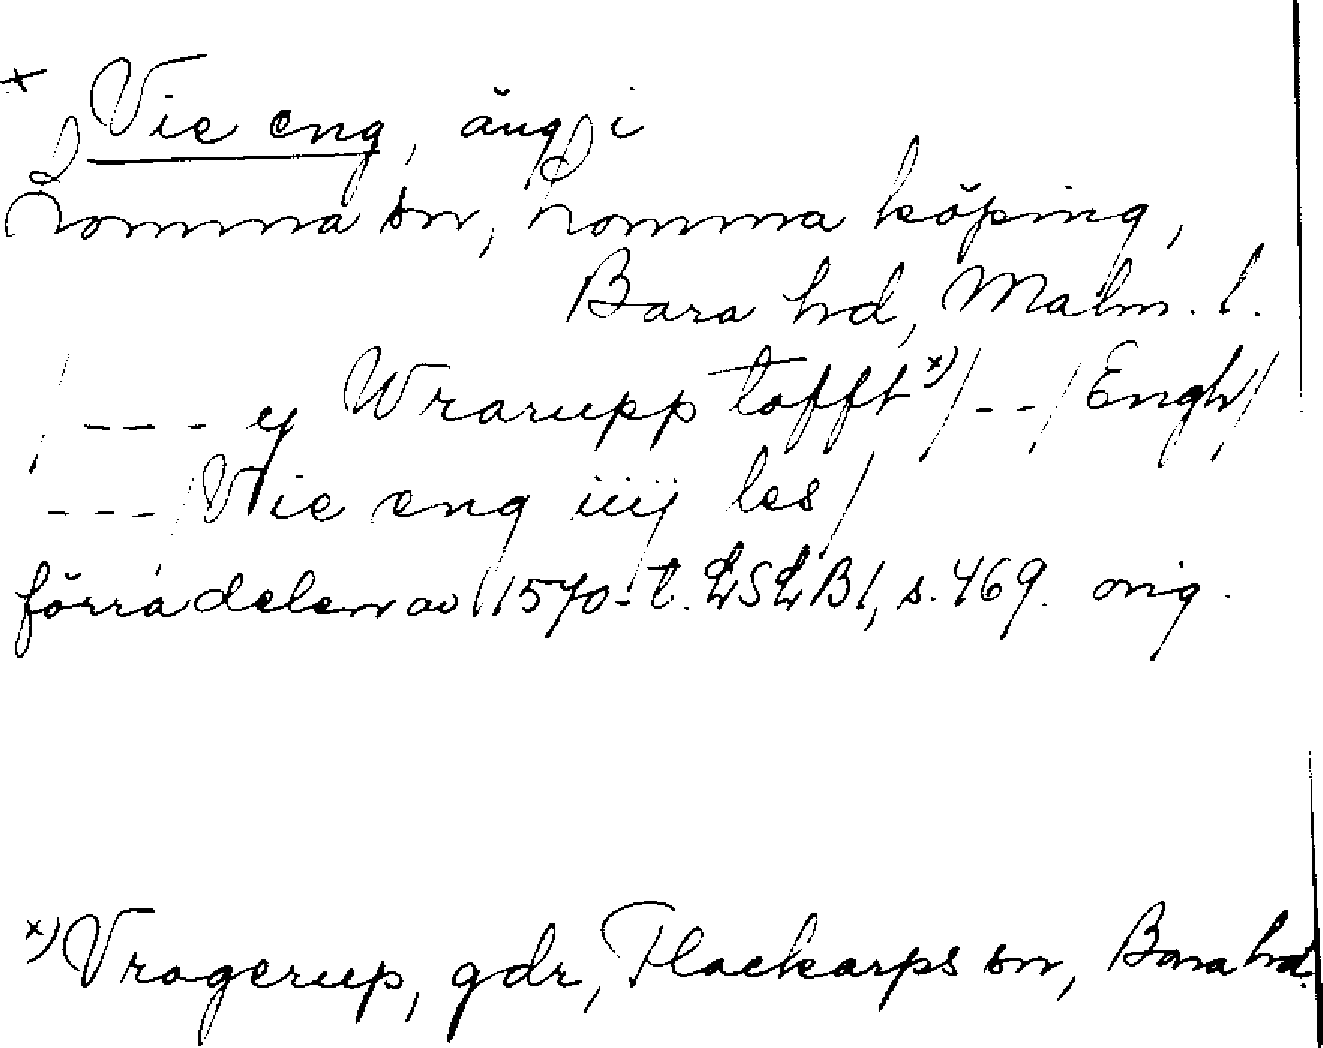 × Vie eng, äng i
Lomma sn, Lomma köping,
Bara hd, Malm. l.
/ - - - y Wrarupp tofft ×) / - - / Engh /
- - - / Vie eng iiij les /
förra delen av 1570-t. LSLB1, s. 469. orig.
×) Vragerup, gdr, Flackarps sn, Bara hd.